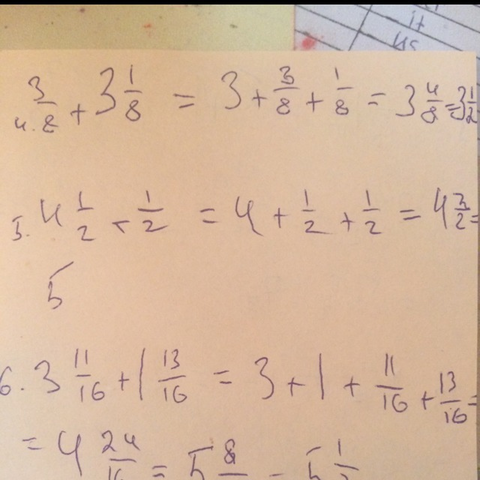 it
us
4. 3/8 + 3 1/8 = 3 + 3/8 + 1/8 = 3 4/8 = 3 1/2
5. 4 1/2 + 1/2 = 4 + 1/2 + 1/2 = 4 2/2 =
5
6. 3 11/16 + 1 13/16 = 3 + 1 + 11/16 + 13/16 =
= 4 24/16 = 5 8/ = 5 1/2